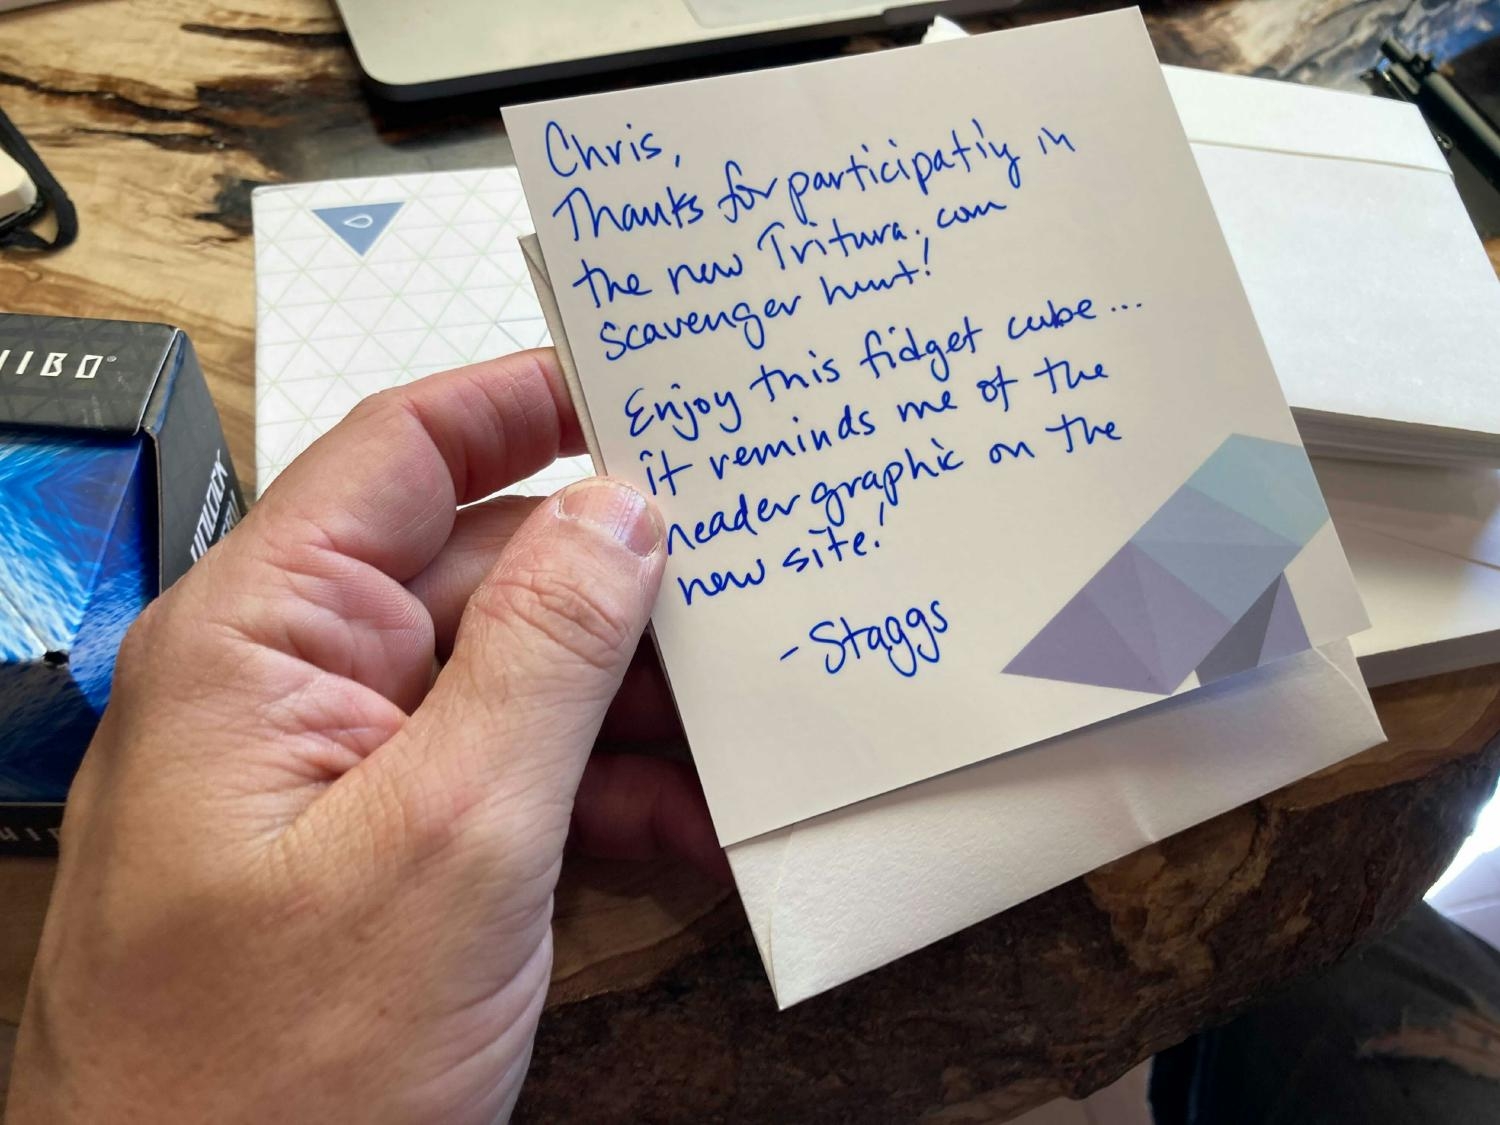 Chris,
Thanks for participating in
the new Tritura.com
scavenger hunt!
Enjoy this fidget cube...
it reminds me of the
header graphic on the
new site!
-Staggs
HIBO
UNLOCK